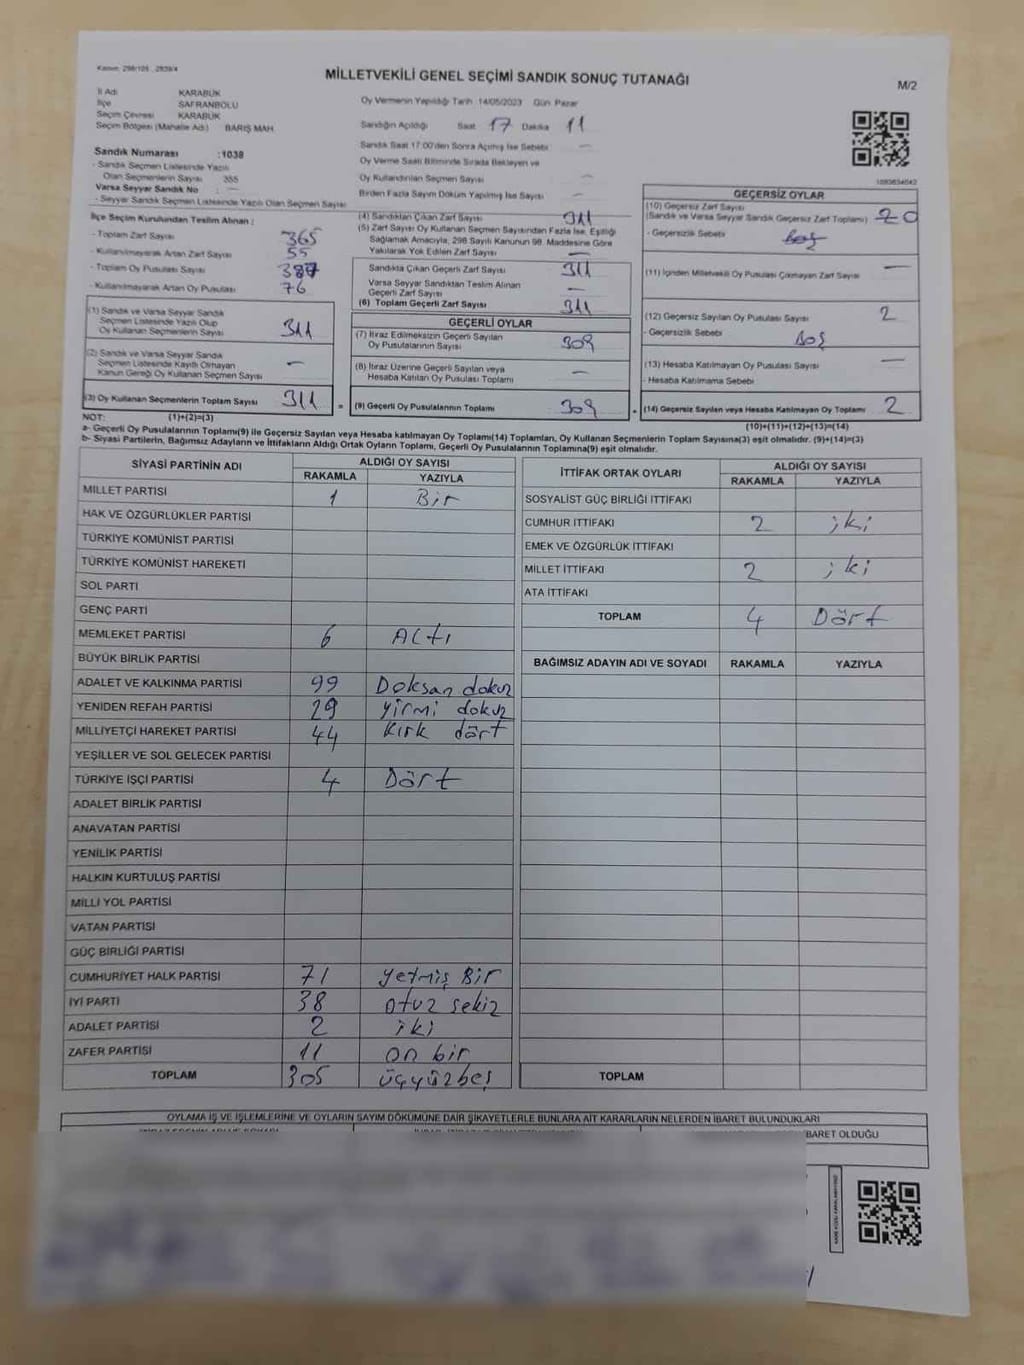 Kanun: 298/105 , 2839/4
MİLLETVEKİLİ GENEL SEÇİMİ SANDIK SONUÇ TUTANAĞI
M/2
İl Adı KARABÜK
İlçe SAFRANBOLU
Seçim Çevresi KARABÜK
Seçim Bölgesi (Mahalle Adı) BARIŞ MAH.
Sandık Numarası :1038
- Sandık Seçmen Listesinde Yazılı
Olan Seçmenlerin Sayısı 355
Varsa Seyyar Sandık No : —
- Seyyar Sandık Seçmen Listesinde Yazılı Olan Seçmen Sayısı
Oy Vermenin Yapıldığı Tarih 14/05/2023 Gün Pazar
Sandığın Açıldığı Saat 17 Dakika 11
Sandık Saat 17:00'den Sonra Açılmış İse Sebebi —
Oy Verme Saati Bitiminde Sırada Bekleyen ve
Oy Kullandırılan Seçmen Sayısı —
Birden Fazla Sayım Döküm Yapılmış İse Sayısı —
1693634642
İlçe Seçim Kurulundan Teslim Alınan :
- Toplam Zarf Sayısı 365
- Kullanılmayarak Artan Zarf Sayısı 55
- Toplam Oy Pusulası Sayısı 387
- Kullanılmayarak Artan Oy Pusulası 76
(1) Sandık ve Varsa Seyyar Sandık
Seçmen Listesinde Yazılı Olup
Oy Kullanan Seçmenlerin Sayısı 311
(2) Sandık ve Varsa Seyyar Sandık
Seçmen Listesinde Kayıtlı Olmayan
Kanun Gereği Oy Kullanan Seçmen Sayısı —
(3) Oy Kullanan Seçmenlerin Toplam Sayısı 311 =
(4) Sandıktan Çıkan Zarf Sayısı 311
(5) Zarf Sayısı Oy Kullanan Seçmen Sayısından Fazla İse, Eşitliği
Sağlamak Amacıyla, 298 Sayılı Kanunun 98. Maddesine Göre
Yakılarak Yok Edilen Zarf Sayısı —
Sandıkta Çıkan Geçerli Zarf Sayısı 311
Varsa Seyyar Sandıktan Teslim Alınan
Geçerli Zarf Sayısı —
(6) Toplam Geçerli Zarf Sayısı 311
GEÇERLİ OYLAR
(7) İtiraz Edilmeksizin Geçerli Sayılan
Oy Pusulalarının Sayısı 309
(8) İtiraz Üzerine Geçerli Sayılan veya
Hesaba Katılan Oy Pusulası Toplamı —
(9) Geçerli Oy Pusulalarının Toplamı 309
GEÇERSİZ OYLAR
(10) Geçersiz Zarf Sayısı
(Sandık ve Varsa Seyyar Sandık Geçersiz Zarf Toplamı)
- Geçersizlik Sebebi Boş
(11) İçinden Milletvekili Oy Pusulası Çıkmayan Zarf Sayısı —
(12) Geçersiz Sayılan Oy Pusulası Sayısı 2
- Geçersizlik Sebebi Boş
(13) Hesaba Katılmayan Oy Pusulası Sayısı —
- Hesaba Katılmama Sebebi
(14) Geçersiz Sayılan veya Hesaba Katılmayan Oy Toplamı 2
NOT: (1)+(2)=(3) (10)+(11)+(12)+(13)=(14)
a- Geçerli Oy Pusulalarının Toplamı(9) ile Geçersiz Sayılan veya Hesaba katılmayan Oy Toplamı(14) Toplamları, Oy Kullanan Seçmenlerin Toplam Sayısına(3) eşit olmalıdır. (9)+(14)=(3)
b- Siyasi Partilerin, Bağımsız Adayların ve İttifakların Aldığı Ortak Oyların Toplamı, Geçerli Oy Pusulalarının Toplamına(9) eşit olmalıdır.
SİYASİ PARTİNİN ADI ALDIĞI OY SAYISI
RAKAMLA YAZIYLA
MİLLET PARTİSİ 1 Bir
HAK VE ÖZGÜRLÜKLER PARTİSİ
TÜRKİYE KOMÜNİST PARTİSİ
TÜRKİYE KOMÜNİST HAREKETİ
SOL PARTİ
GENÇ PARTİ
MEMLEKET PARTİSİ 6 Altı
BÜYÜK BİRLİK PARTİSİ
ADALET VE KALKINMA PARTİSİ 99 Doksan dokuz
YENİDEN REFAH PARTİSİ 29 yirmi dokuz
MİLLİYETÇİ HAREKET PARTİSİ 44 kırk dört
YEŞİLLER VE SOL GELECEK PARTİSİ
TÜRKİYE İŞÇİ PARTİSİ 4 Dört
ADALET BİRLİK PARTİSİ
ANAVATAN PARTİSİ
YENİLİK PARTİSİ
HALKIN KURTULUŞ PARTİSİ
MİLLİ YOL PARTİSİ
VATAN PARTİSİ
GÜÇ BİRLİĞİ PARTİSİ
CUMHURİYET HALK PARTİSİ 71 yetmiş Bir
İYİ PARTİ 38 otuz sekiz
ADALET PARTİSİ 2 iki
ZAFER PARTİSİ 11 on bir
TOPLAM 305 üçyüzbeş
İTTİFAK ORTAK OYLARI ALDIĞI OY SAYISI
RAKAMLA YAZIYLA
SOSYALİST GÜÇ BİRLİĞİ İTTİFAKI
CUMHUR İTTİFAKI 2 iki
EMEK VE ÖZGÜRLÜK İTTİFAKI
MİLLET İTTİFAKI 2 iki
ATA İTTİFAKI
TOPLAM 4 Dört
BAĞIMSIZ ADAYIN ADI VE SOYADI RAKAMLA YAZIYLA
TOPLAM
OYLAMA İŞ VE İŞLEMLERİNE VE OYLARIN SAYIM DÖKÜMÜNE DAİR ŞİKAYETLERLE BUNLARA AİT KARARLARIN NELERDEN İBARET BULUNDUKLARI
BARET OLDUĞU